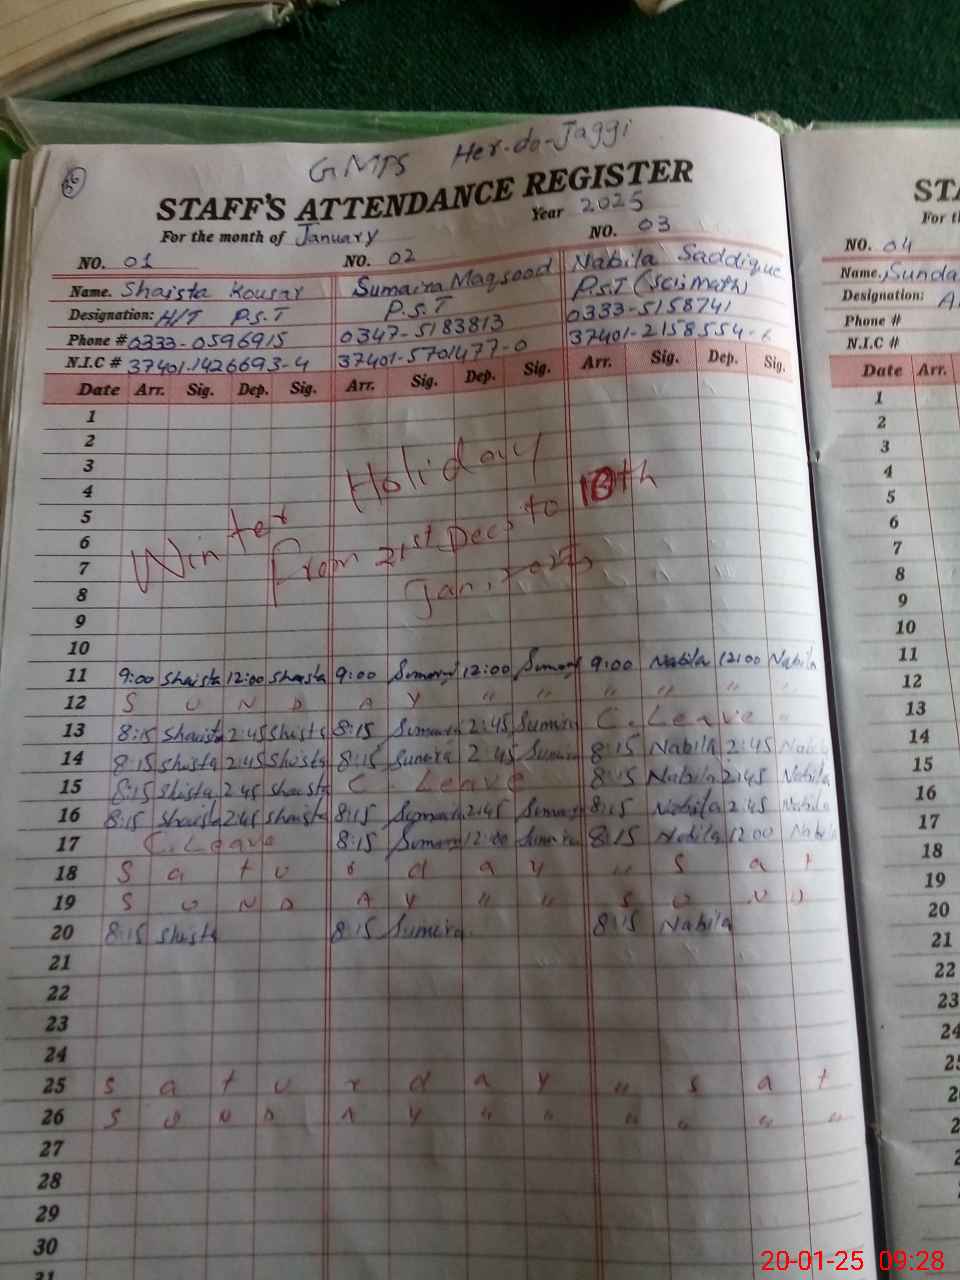 36
GMPS Her-do-Jaggi
STAFF'S ATTENDANCE REGISTER
For the month of January Year 2025
NO. 01 NO. 02 NO. 03
Name. Shaista Kousar Sumaira Maqsood Nabila Saddique
Designation: H/T P.S.T P.S.T P.S.T (Sci Math)
Phone # 0333-0596915 0347-5183813 0333-5158741
N.I.C # 37401-1426693-4 37401-5701477-0 37401-2158554-
Date Arr. Sig. Dep. Sig. Arr. Sig. Dep. Sig. Arr. Sig. Dep. Sig.
1
2
3
4
5
6
7
8
9
10
Winter Holiday
From 21st Dec. to 10th
Jan, 2025
11 9:00 Shaista 12:00 Shaista 9:00 12:00 9:00 Nabila 12:00 Nabila
12 S U N D A Y " " " " " "
13 8:15 Shaista 2:45 Shaista 8:15 2:45 C. Leave "
14 8:15 Shista 2:45 Shaista 8:15 Sumira 2:45 8:15 Nabila 2:45 Nabila
15 8:15 Shista 2:45 Shaista C. Leave 8:15 Nabila 2:45 Nabila
16 8:15 Shaista 2:45 Shaista 8:15 2:45 8:15 Nabila 2:45 Nabila
17 C. Leave 8:15 12:00 Sumaira 8:15 Nabila 12:00 Nabila
18 S a t u r d a y " S a t
19 S U N D A Y " " S U N D
20 8:15 Shista 8:15 Sumeira 8:15 Nabila
21
22
23
24
25 S a t u r d a y " S a t
26 S U N D A Y " " " " " "
27
28
29
30
31
STA
For th
NO. 04
Name. Sunda
Designation: A
Phone #
N.I.C #
Date Arr.
1
2
3
4
5
6
7
8
9
10
11
12
13
14
15
16
17
18
19
20
21
22
23
24
20-01-25 09:28